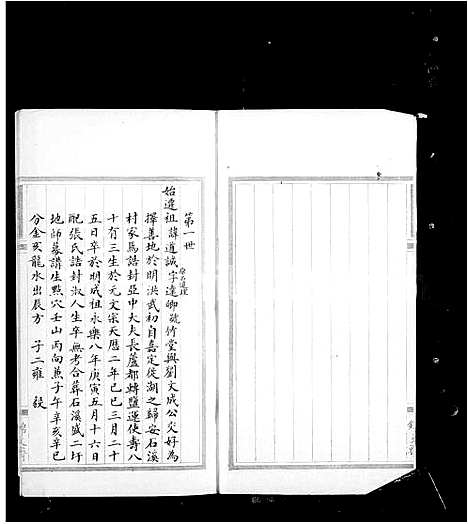 第一世
始遷祖諱道誠字達卿號竹堂與劉文成公交好為
擇善地於明洪武初自嘉定徙湖之歸安石溪
村家焉誥封亞中大夫長蘆都轉鹽運使壽八
十有三生於元文宗天曆二年己巳三月二十
五日卒於明成祖永樂八年庚寅五月十六日
配張氏誥封淑人生卒無考合葬石溪盛二圩
地師慕講生點穴壬山丙向兼子午辛亥辛巳
分金亥龍水出辰方 子二雍